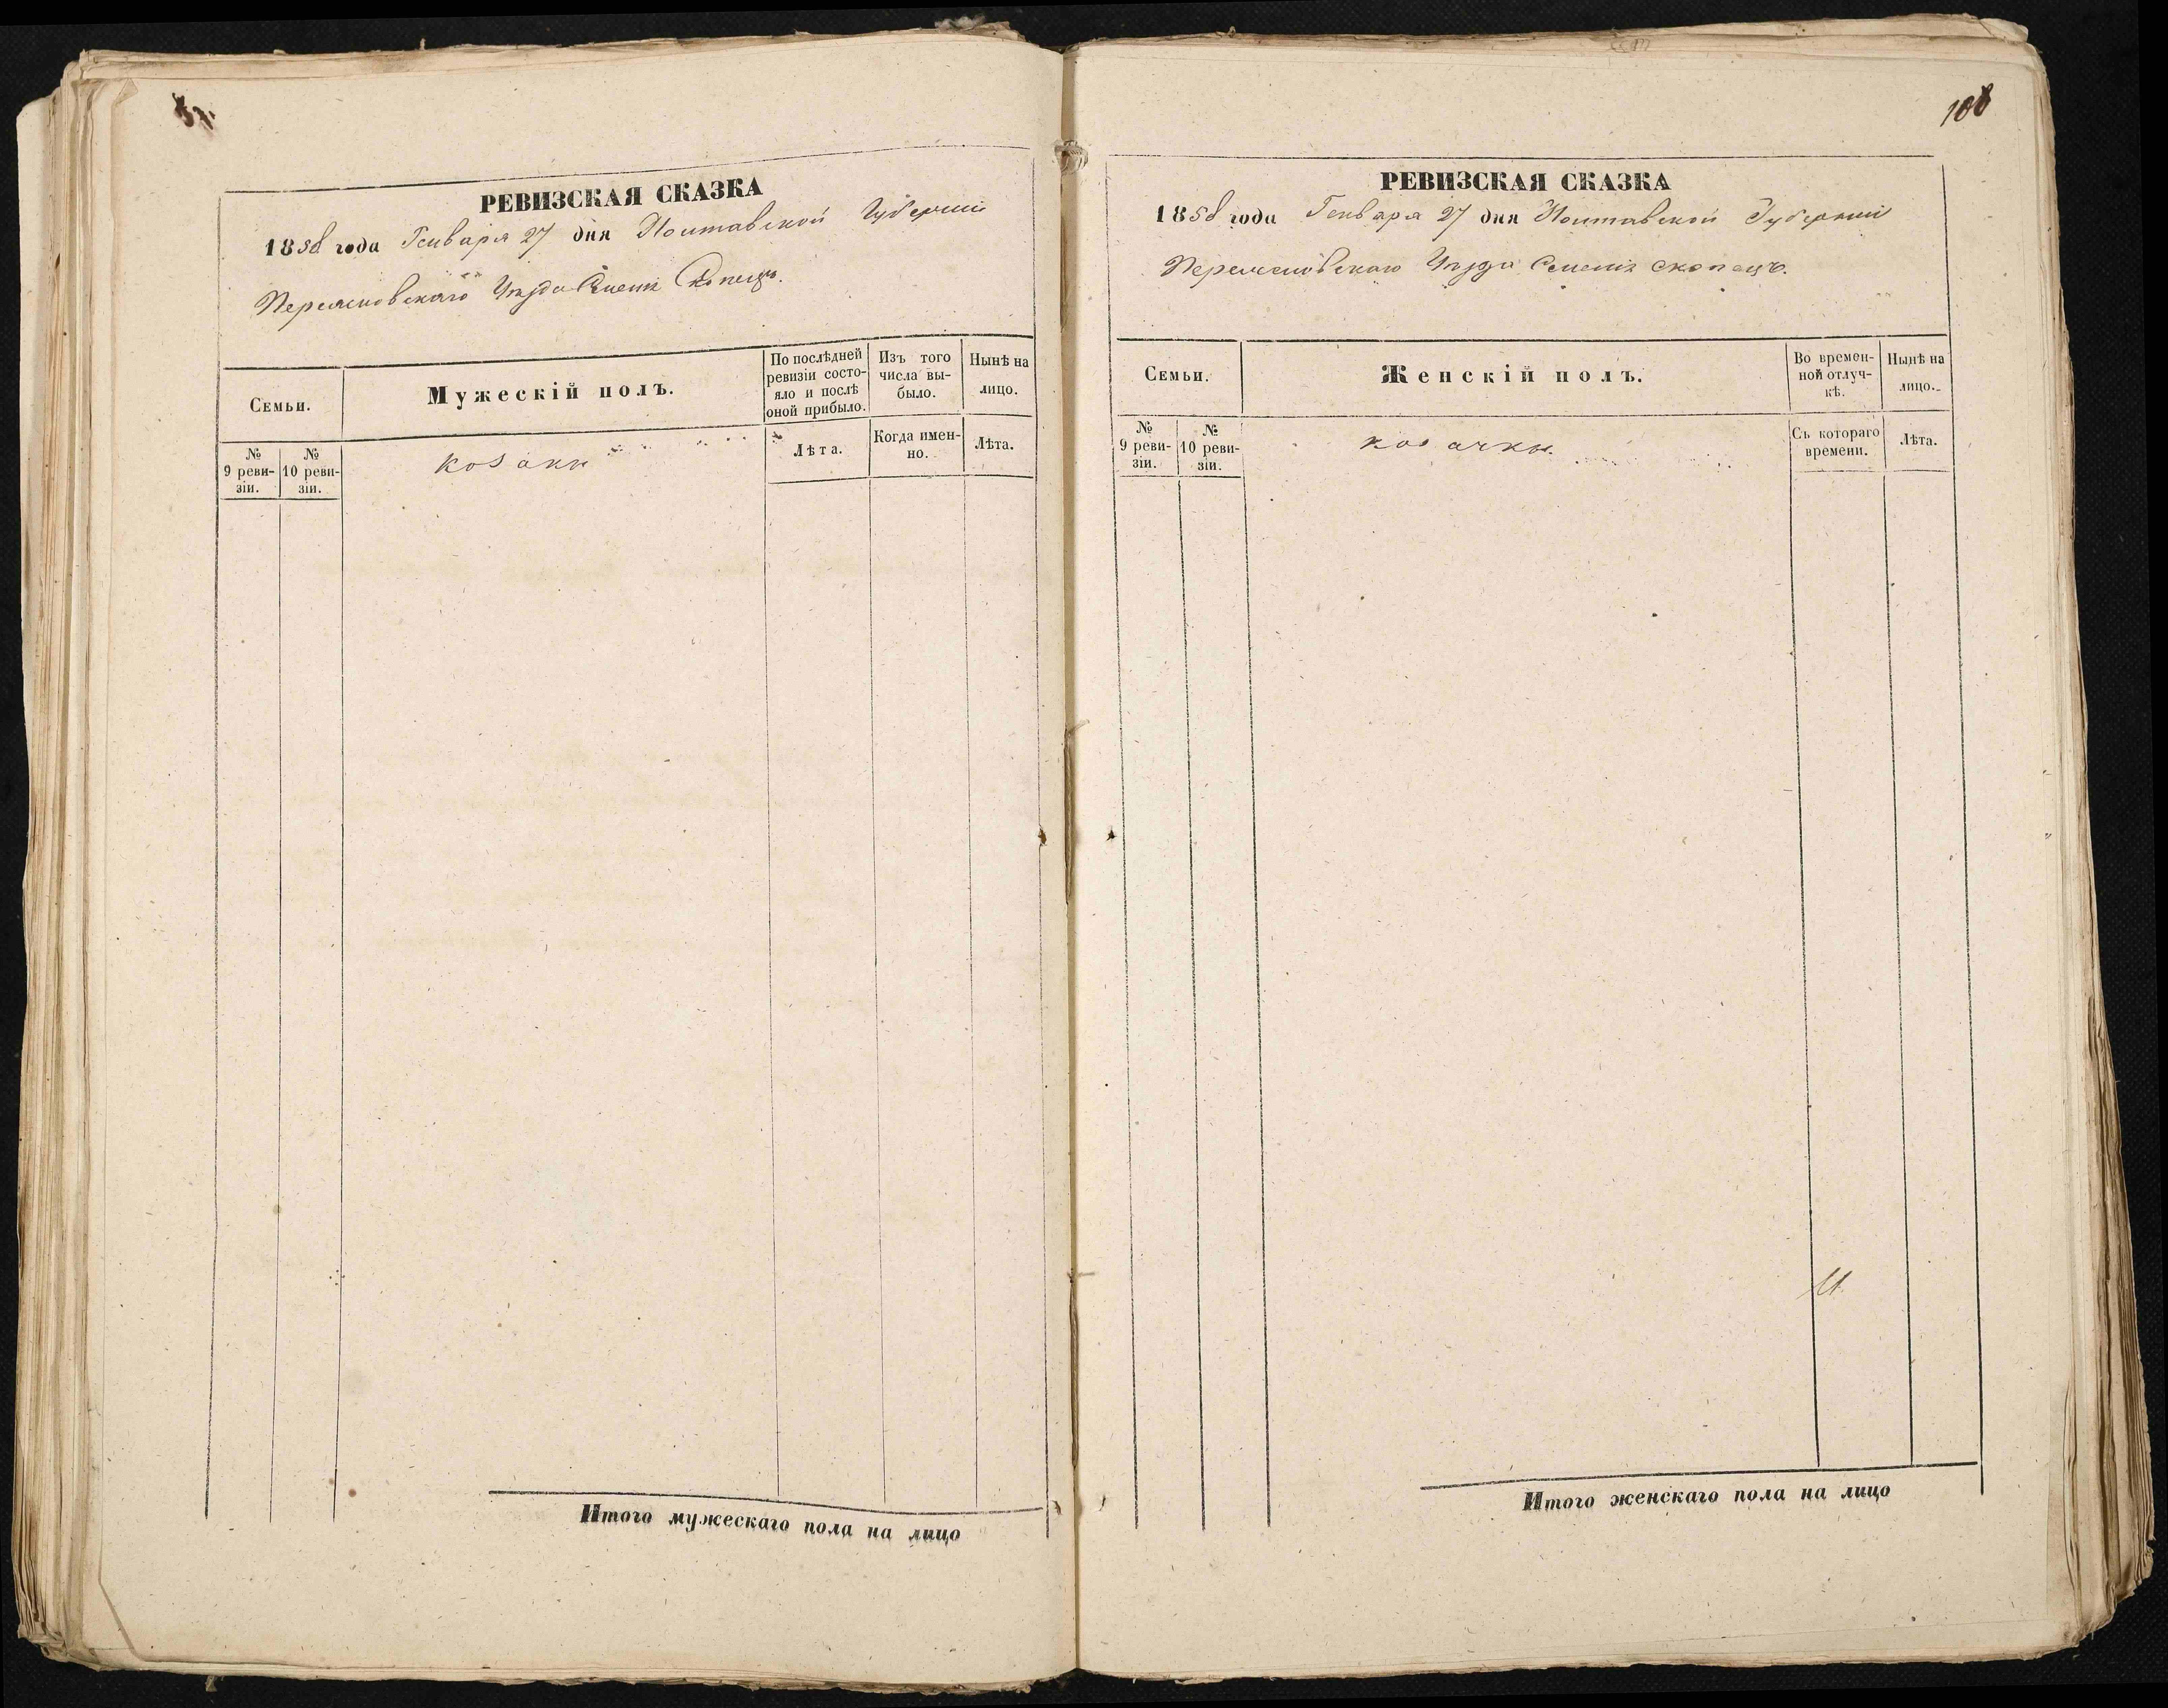 РЕВИЗСКАЯ СКАЗКА
1858 года Генваря 27 дня Полтавской Губерніи
Переяславскаго Уѣзда Скопецъ.
Семьи.
Мужескій полъ.
По послѣдней ревизіи состо-
яло и послѣ оной прибыло.
Изъ того числа вы-
было.
Нынѣ на лицо.
№ 9 реви-
зіи.
№ 10 реви-
зіи.
козаки
Лѣта.
Когда имен-
но.
Лѣта.
Итого мужескаго пола на лицо
108
РЕВИЗСКАЯ СКАЗКА
1858 года Генваря 27 дня Полтавской Губерніи
Переяславскаго Уѣзда скопецъ.
Семьи.
Женскій полъ.
Во времен-
ной отлуч-
кѣ.
Нынѣ на лицо.
№ 9 реви-
зіи.
№ 10 реви-
зіи.
козачки.
Съ котораго времени.
Лѣта.
Итого женскаго пола на лицо